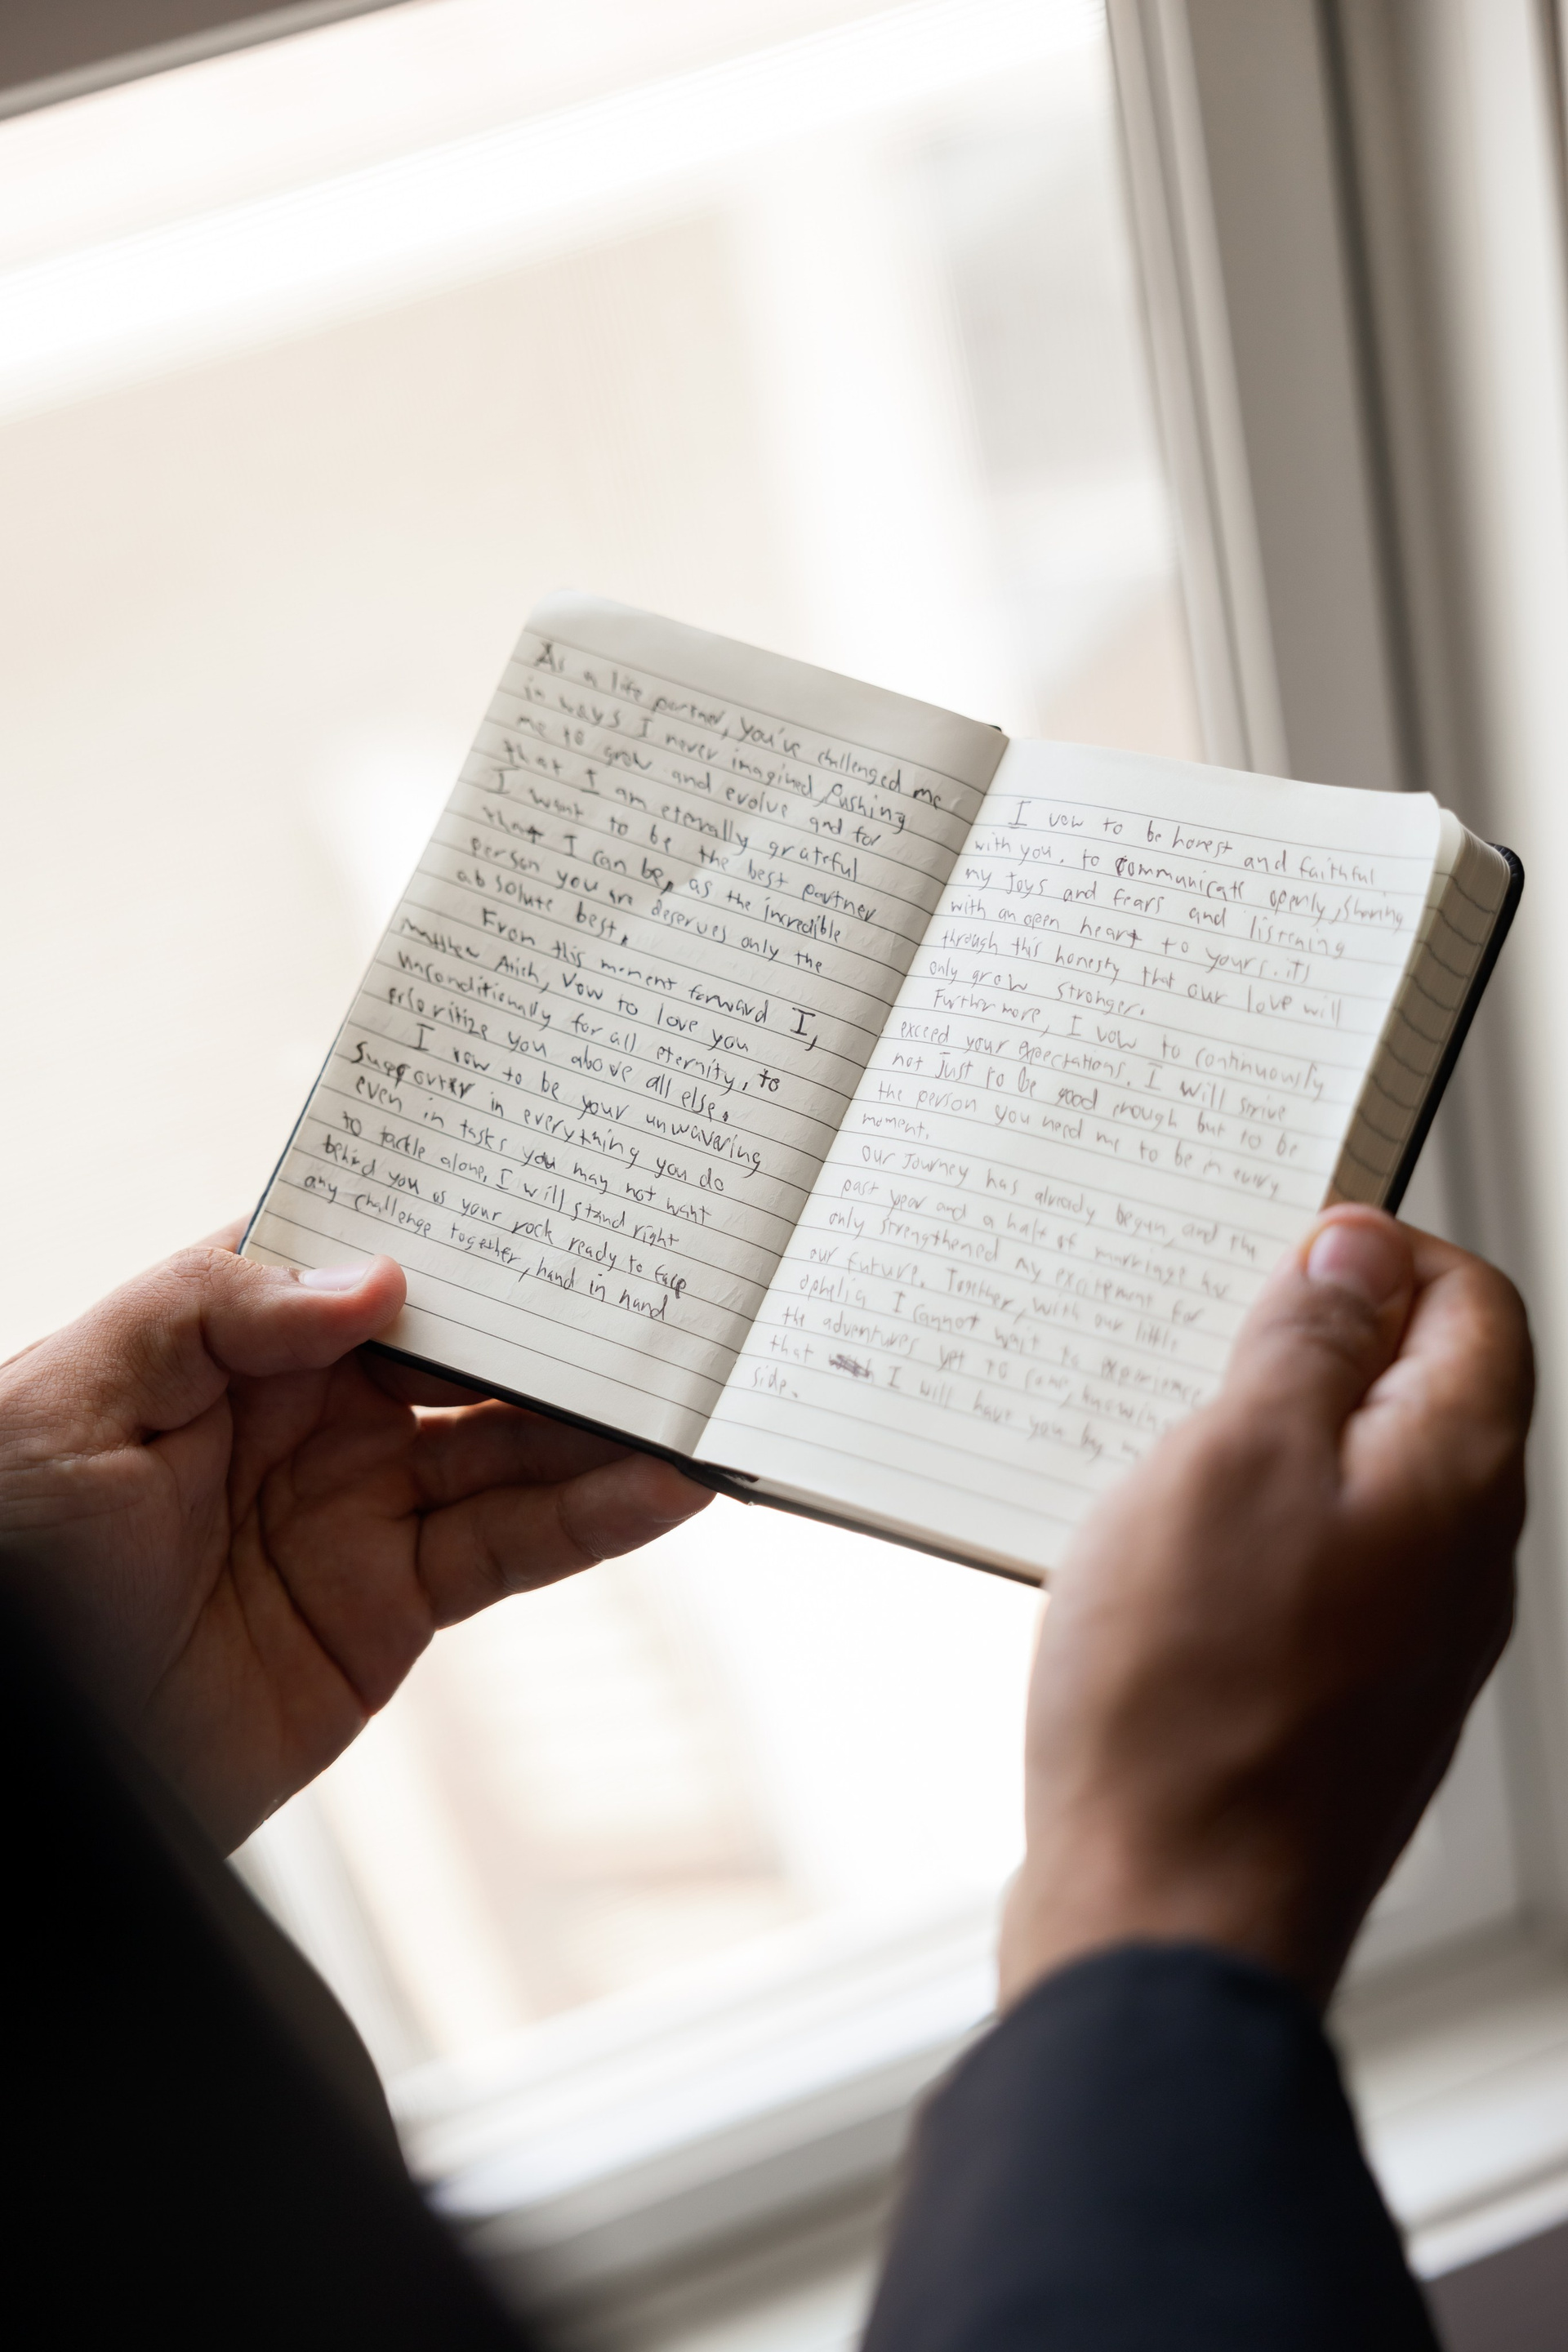 As a life partner, you've challenged me
in ways I never imagined, pushing
me to grow and evolve and for
that I am eternally grateful
I want to be the best partner
that I can be, as the incredible
person you are deserves only the
absolute best.
From this moment forward I,
Matthew, Vow to love you
unconditionally for all eternity, to
prioritize you above all else.
I vow to be your unwavering
in everything you do
even in tasks you may not want
to tackle alone, I will stand right
behind you as your rock ready to face
any challenge together, hand in hand
I vow to be honest and faithful
with you, to communicate openly, sharing
my Joys and fears and listening
with an open heart to yours. its
through this honesty that our love will
only grow stronger.
Furthermore, I vow to continuously
exceed your expectations. I will strive
not just to be good enough but to be
the person you need me to be in every
moment.
Our Journey has already begun, and the
past year and a half of marriage has
only strengthened my excitement for
our future. Together, with our little
Ophelia I cannot wait to experience
the adventures yet to come, knowing
that I will have you by my
side.